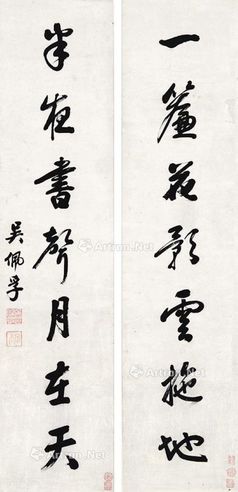 一簾花影雲拖地
半夜書聲月在天
吳佩孚
Artron.Net
Artron.Net